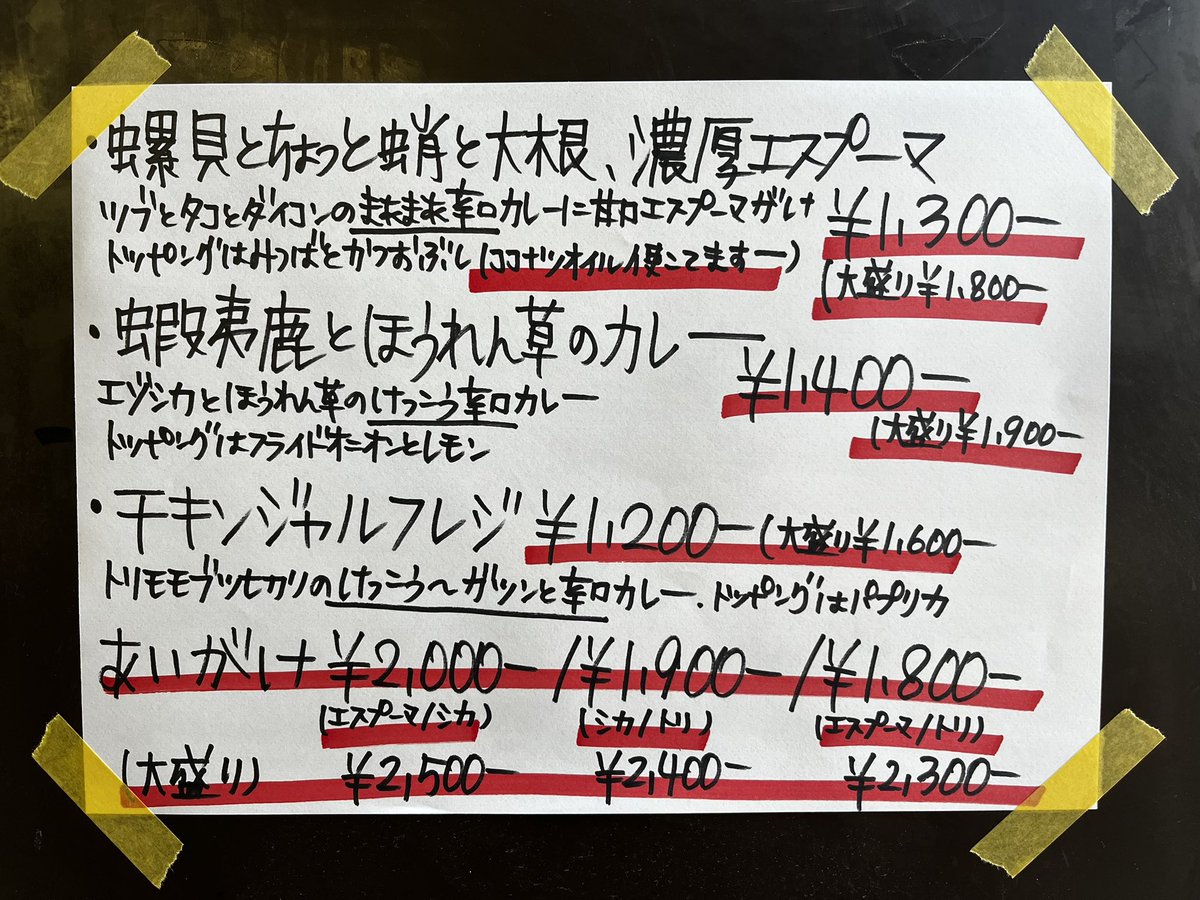 ・螺貝とちょっと蛸と大根、濃厚エスプーマ
ツブとタコとダイコンのまあまあ辛口カレーに甘口エスプーマがけ ¥1,300ー
トッピングはみつばとかつおぶし(ココナツオイル使ってますー)
(大盛り¥1,800ー
・蝦夷鹿とほうれん草のカレー
エゾシカとほうれん草のけっこう辛口カレー ¥1,400ー
(大盛り¥1,900ー
トッピングはフライドオニオンとレモン
・チキンジャルフレジ ¥1,200ー(大盛り¥1,600ー
トリモモブツヒカリのけっこう〜ガツンと辛口カレー、トッピングはパプリカ
あいがけ ¥2,000ー/¥1,900ー/¥1,800ー
(エスプーマ/シカ) (シカ/トリ) (エスプーマ/トリ)
(大盛り) ¥2,500ー ¥2,400ー ¥2,300ー